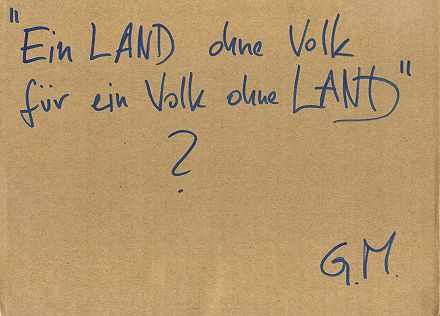 "Ein LAND ohne Volk
für ein Volk ohne LAND"
?
G.M.